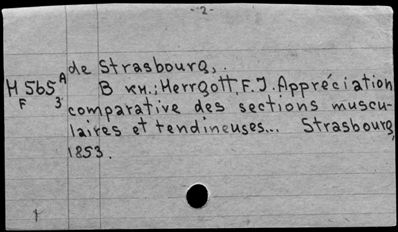 -2-
de Strasbourg,.
H 565 A
F 3
В кн.; Herrgott F.J. Appréciation
comparative des sections muscu-
laires et tendineuses... Strasbourg,
1853.